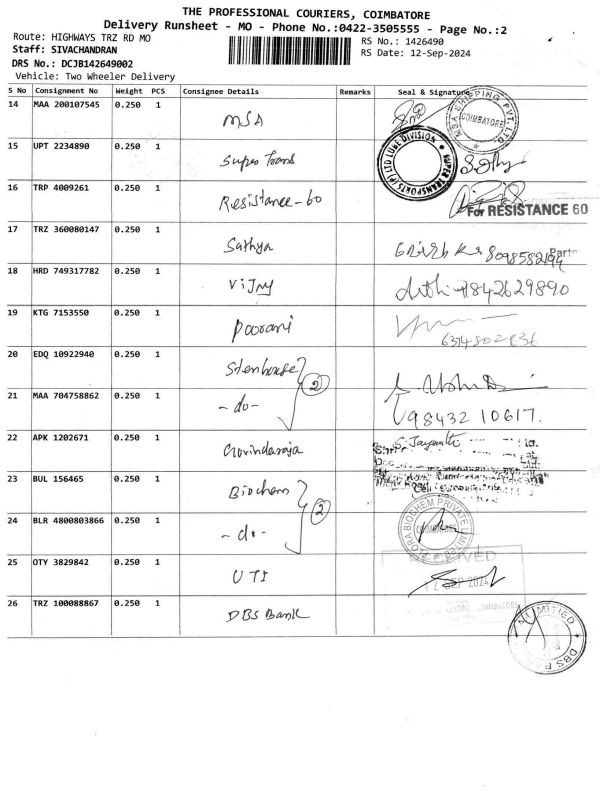 THE PROFESSIONAL COURIERS, COIMBATORE
Delivery Runsheet - MO - Phone No.:0422-3505555 - Page No.:2
Route: HIGHWAYS TRZ RD MO
RS No.: 1426490
Staff: SIVACHANDRAN
RS Date: 12-Sep-2024
DRS No.: DCJB142649002
Vehicle: Two Wheeler Delivery
S No Consignment No Weight PCS Consignee Details Remarks Seal & Signature
14 MAA 200107545 0.250 1 MSA
SHIPPING PVT. LTD. COIMBATORE
15 UPT 2234890 0.250 1 Super Trans
SUPER TRANSPORTS (P) LTD LUBE DIVISION
16 TRP 4009261 0.250 1 Resistance-60
For RESISTANCE 60
17 TRZ 360080147 0.250 1 Sathya
Partn
18 HRD 749317782 0.250 1 Vijay 9842629890
19 KTG 7153550 0.250 1 Poorani
20 EDQ 10922940 0.250 1 Stenhouse
2
21 MAA 704758862 0.250 1 -do- 98432 10617.
22 APK 1202671 0.250 1 Govindaraja S. Jayanthi
23 BUL 156465 0.250 1 Biochem
2
24 BLR 4800803866 0.250 1 -do-
FLORA BIOCHEM PRIVATE LIMITED COIMBATORE
25 OTY 3829842 0.250 1 UTI
12 SEP 2024
COIMBATORE
26 TRZ 100088867 0.250 1 DBS Bank
DBS BANK LIMITED